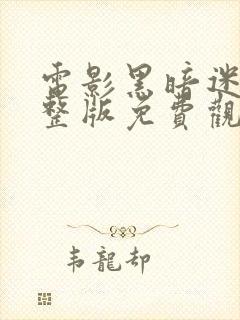 電影黑暗迷
整版免費觀
韦龍却